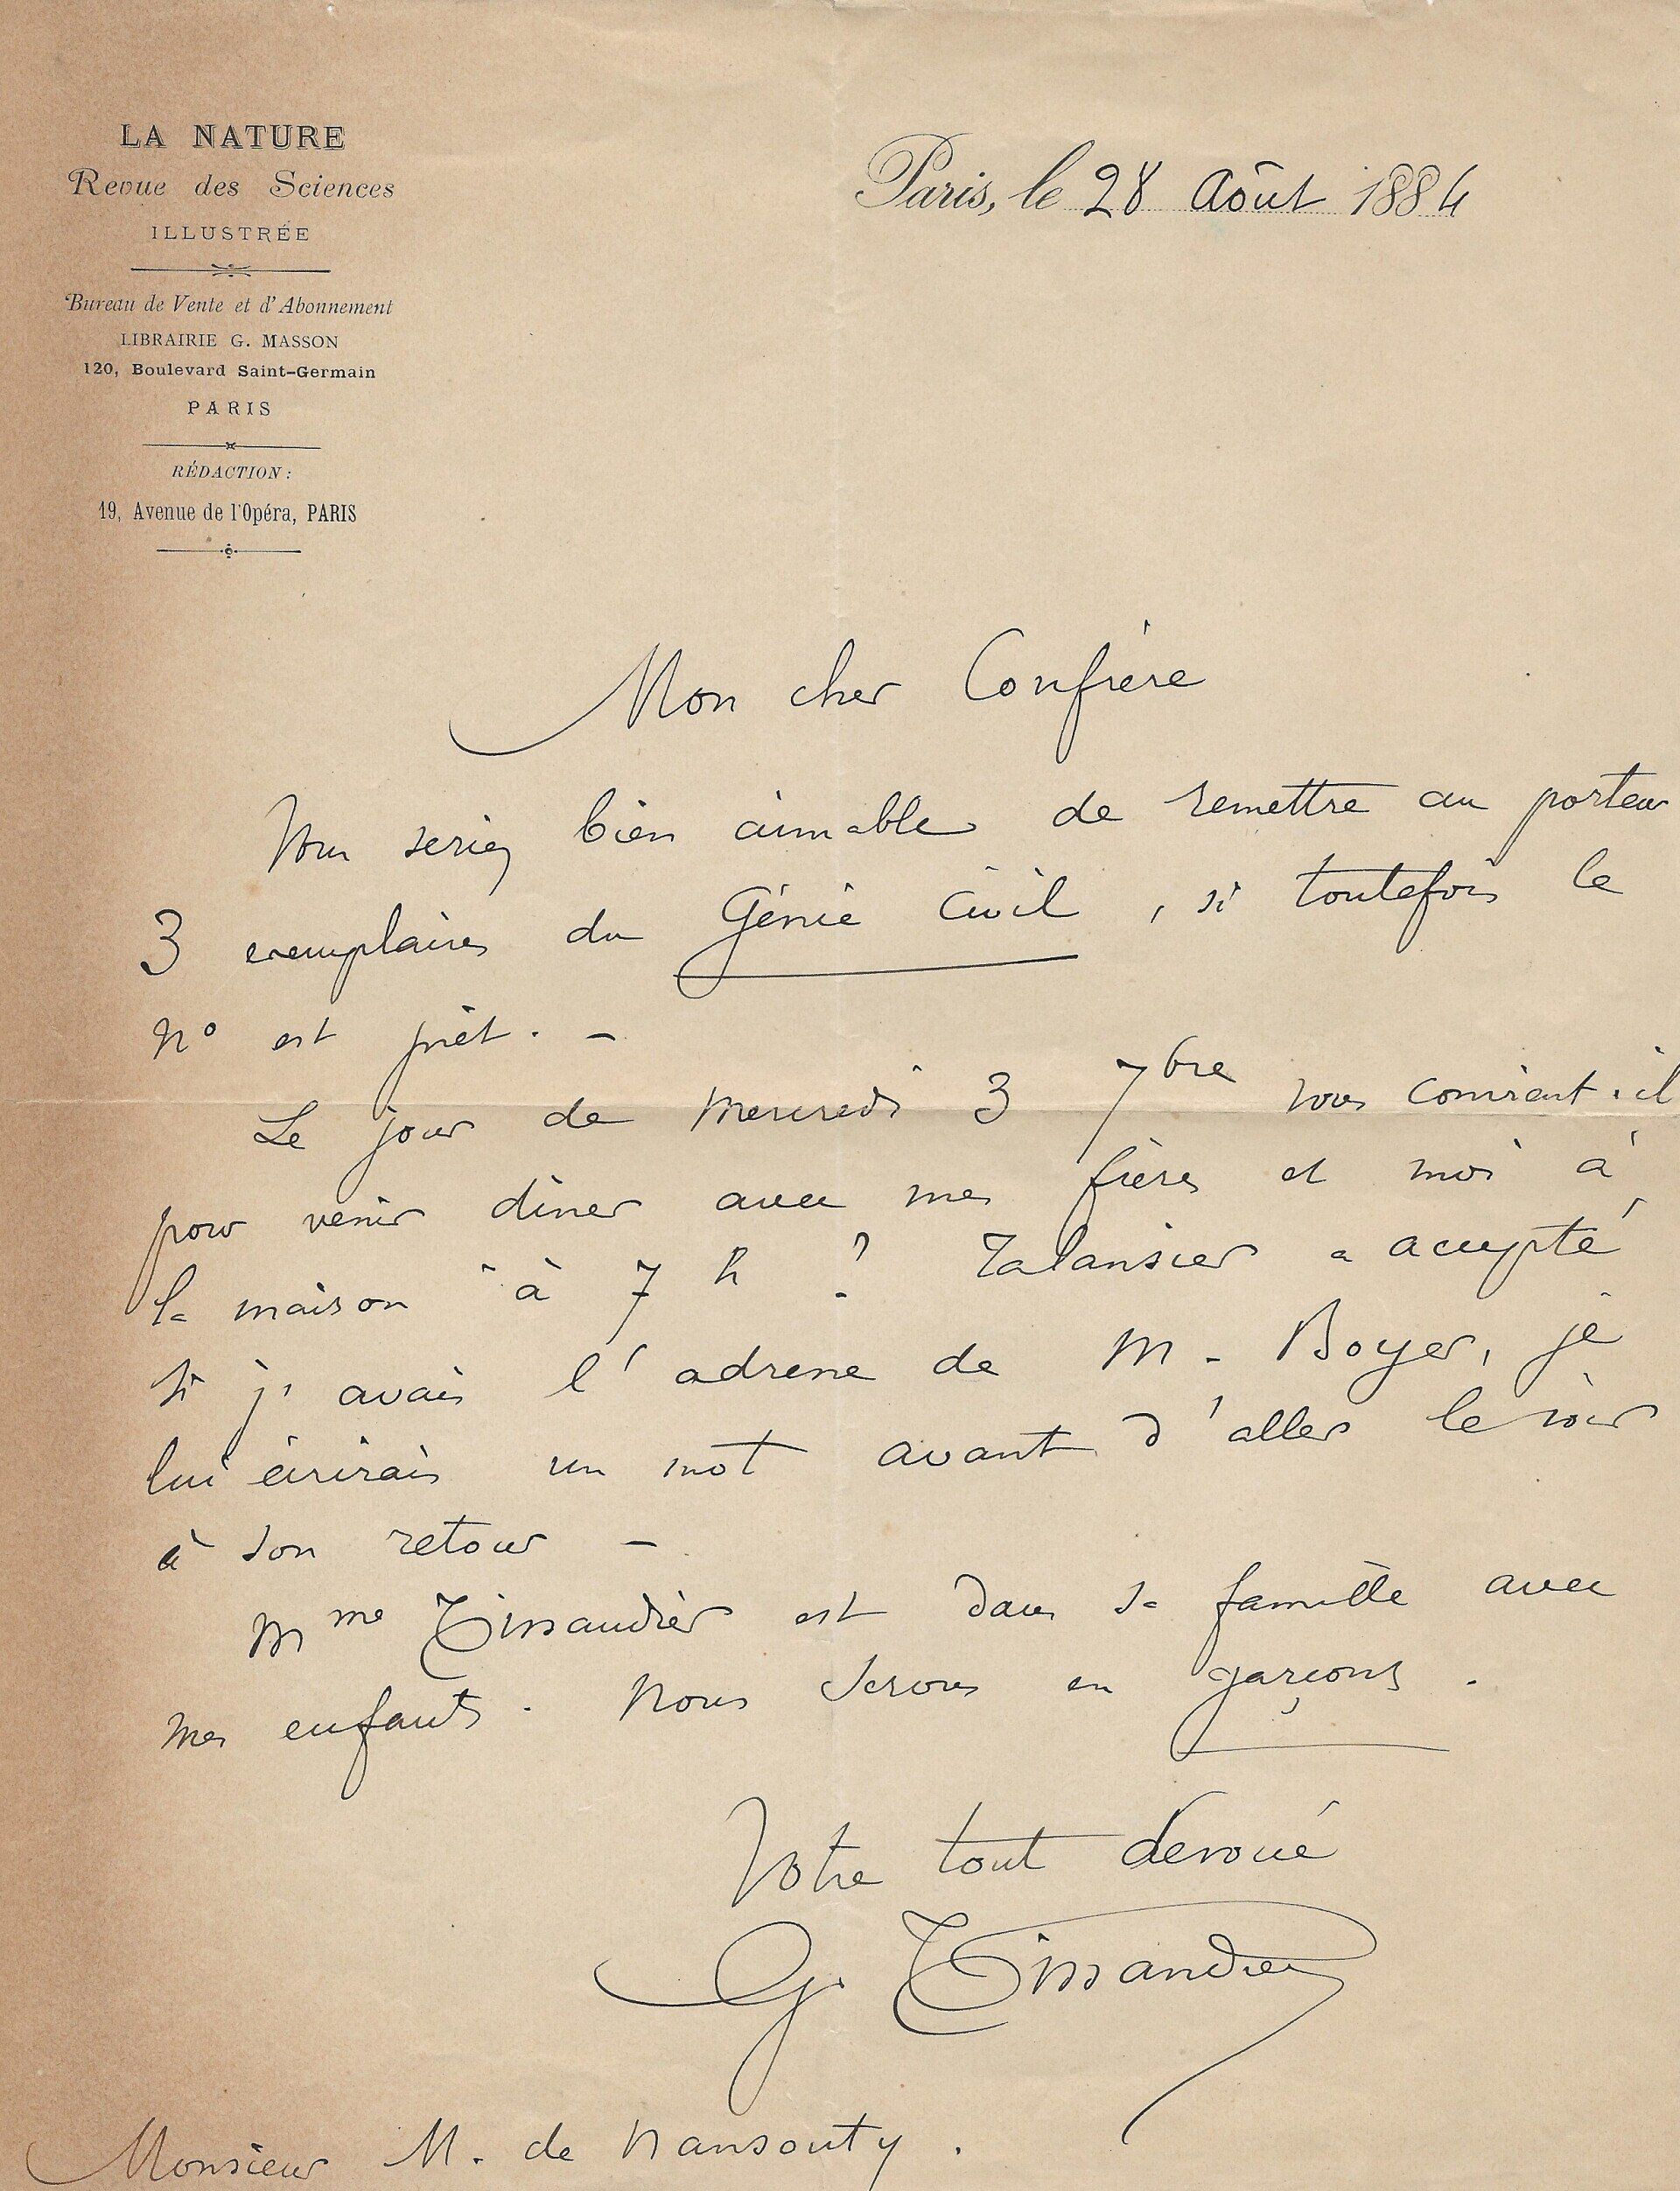 LA NATURE
Revue des Sciences
ILLUSTRÉE
Bureau de Vente et d'Abonnement
LIBRAIRIE G. MASSON
120, Boulevard Saint-Germain
PARIS
RÉDACTION :
19, Avenue de l'Opéra, PARIS
Paris, le 28 Août 1884
Mon cher Confrère
Vous seriez bien aimable de remettre au porteur
3 exemplaires du Génie Civil, si toutefois le
no est prêt. -
Le jour de Mercredi 3 7bre vous convient-il
pour venir diner avec mes frères et moi à
la maison à 7 h ? Talansier a accepté
Si j'avais l'adresse de M. Boyer, je
lui écrirais un mot avant d'aller le voir
à son retour -
Mme Tissandier est dans sa famille avec
mes enfants. Nous serons en garçons.
Votre tout dévoué
G. Tissandier
Monsieur M. de Nansouty.